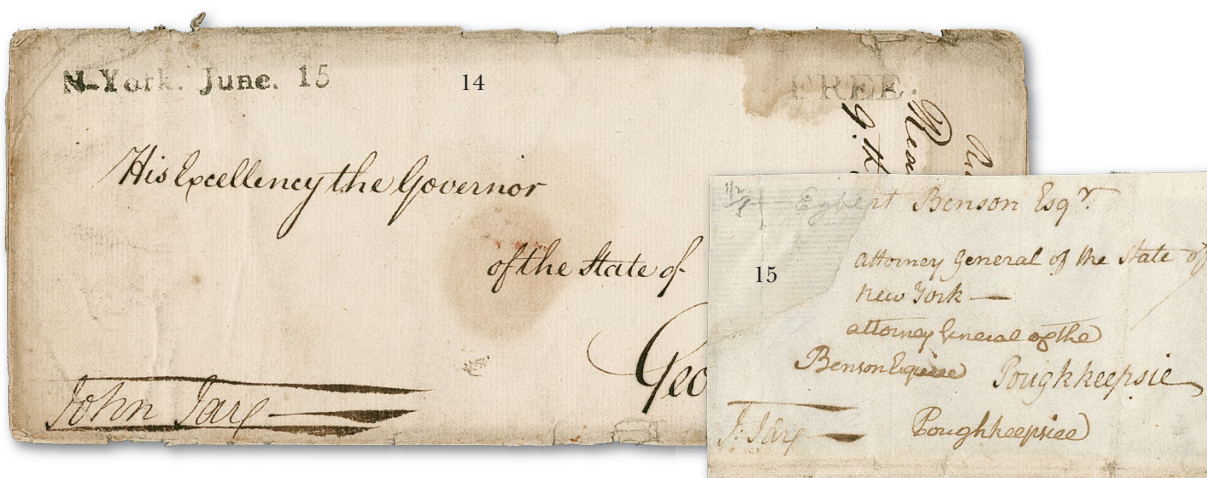 N-York. June. 15
14
FREE.
His Excellency the Governor
of the State of
Geo
John Jay
Egbert Benson Esqr.
15
attorney General of the State of
New York —
attorney General of the
Benson Esquire Poughkeepsie
J. Jay
Poughkeepsiee